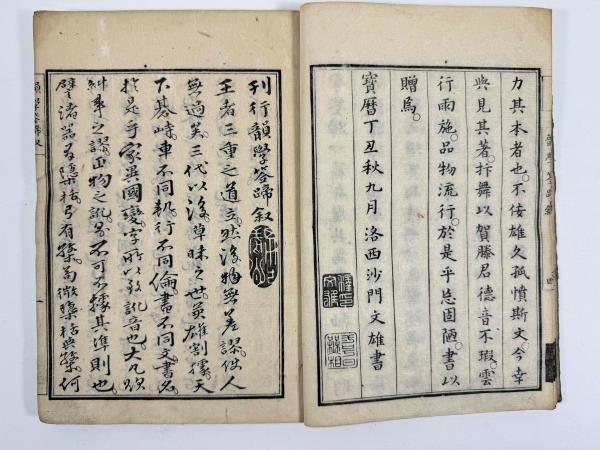 力其本者也。不佞雄久孤憤斯文。今幸
與見其著。抃舞以賀滕君德音不瑕。雲
行雨施。品物流行。於是乎忘固陋。書以
贈焉。
寶曆丁丑秋九月 洛西沙門文雄書
刊行韻學筌蹄叙
王者三重之道立。然後物無差謬。人
無過矣。三代以後。草昧之世。英雄割據。天
下碁峙。車不同軌。行不同倫。書不同文。書名
於是乎家異國變。字所以致訛音也。大凡欲
糾事之謬。正物之訛。者不可不據其準則也。
譬諸器有檃栝。弓有檠。苟微檃栝與檠。何